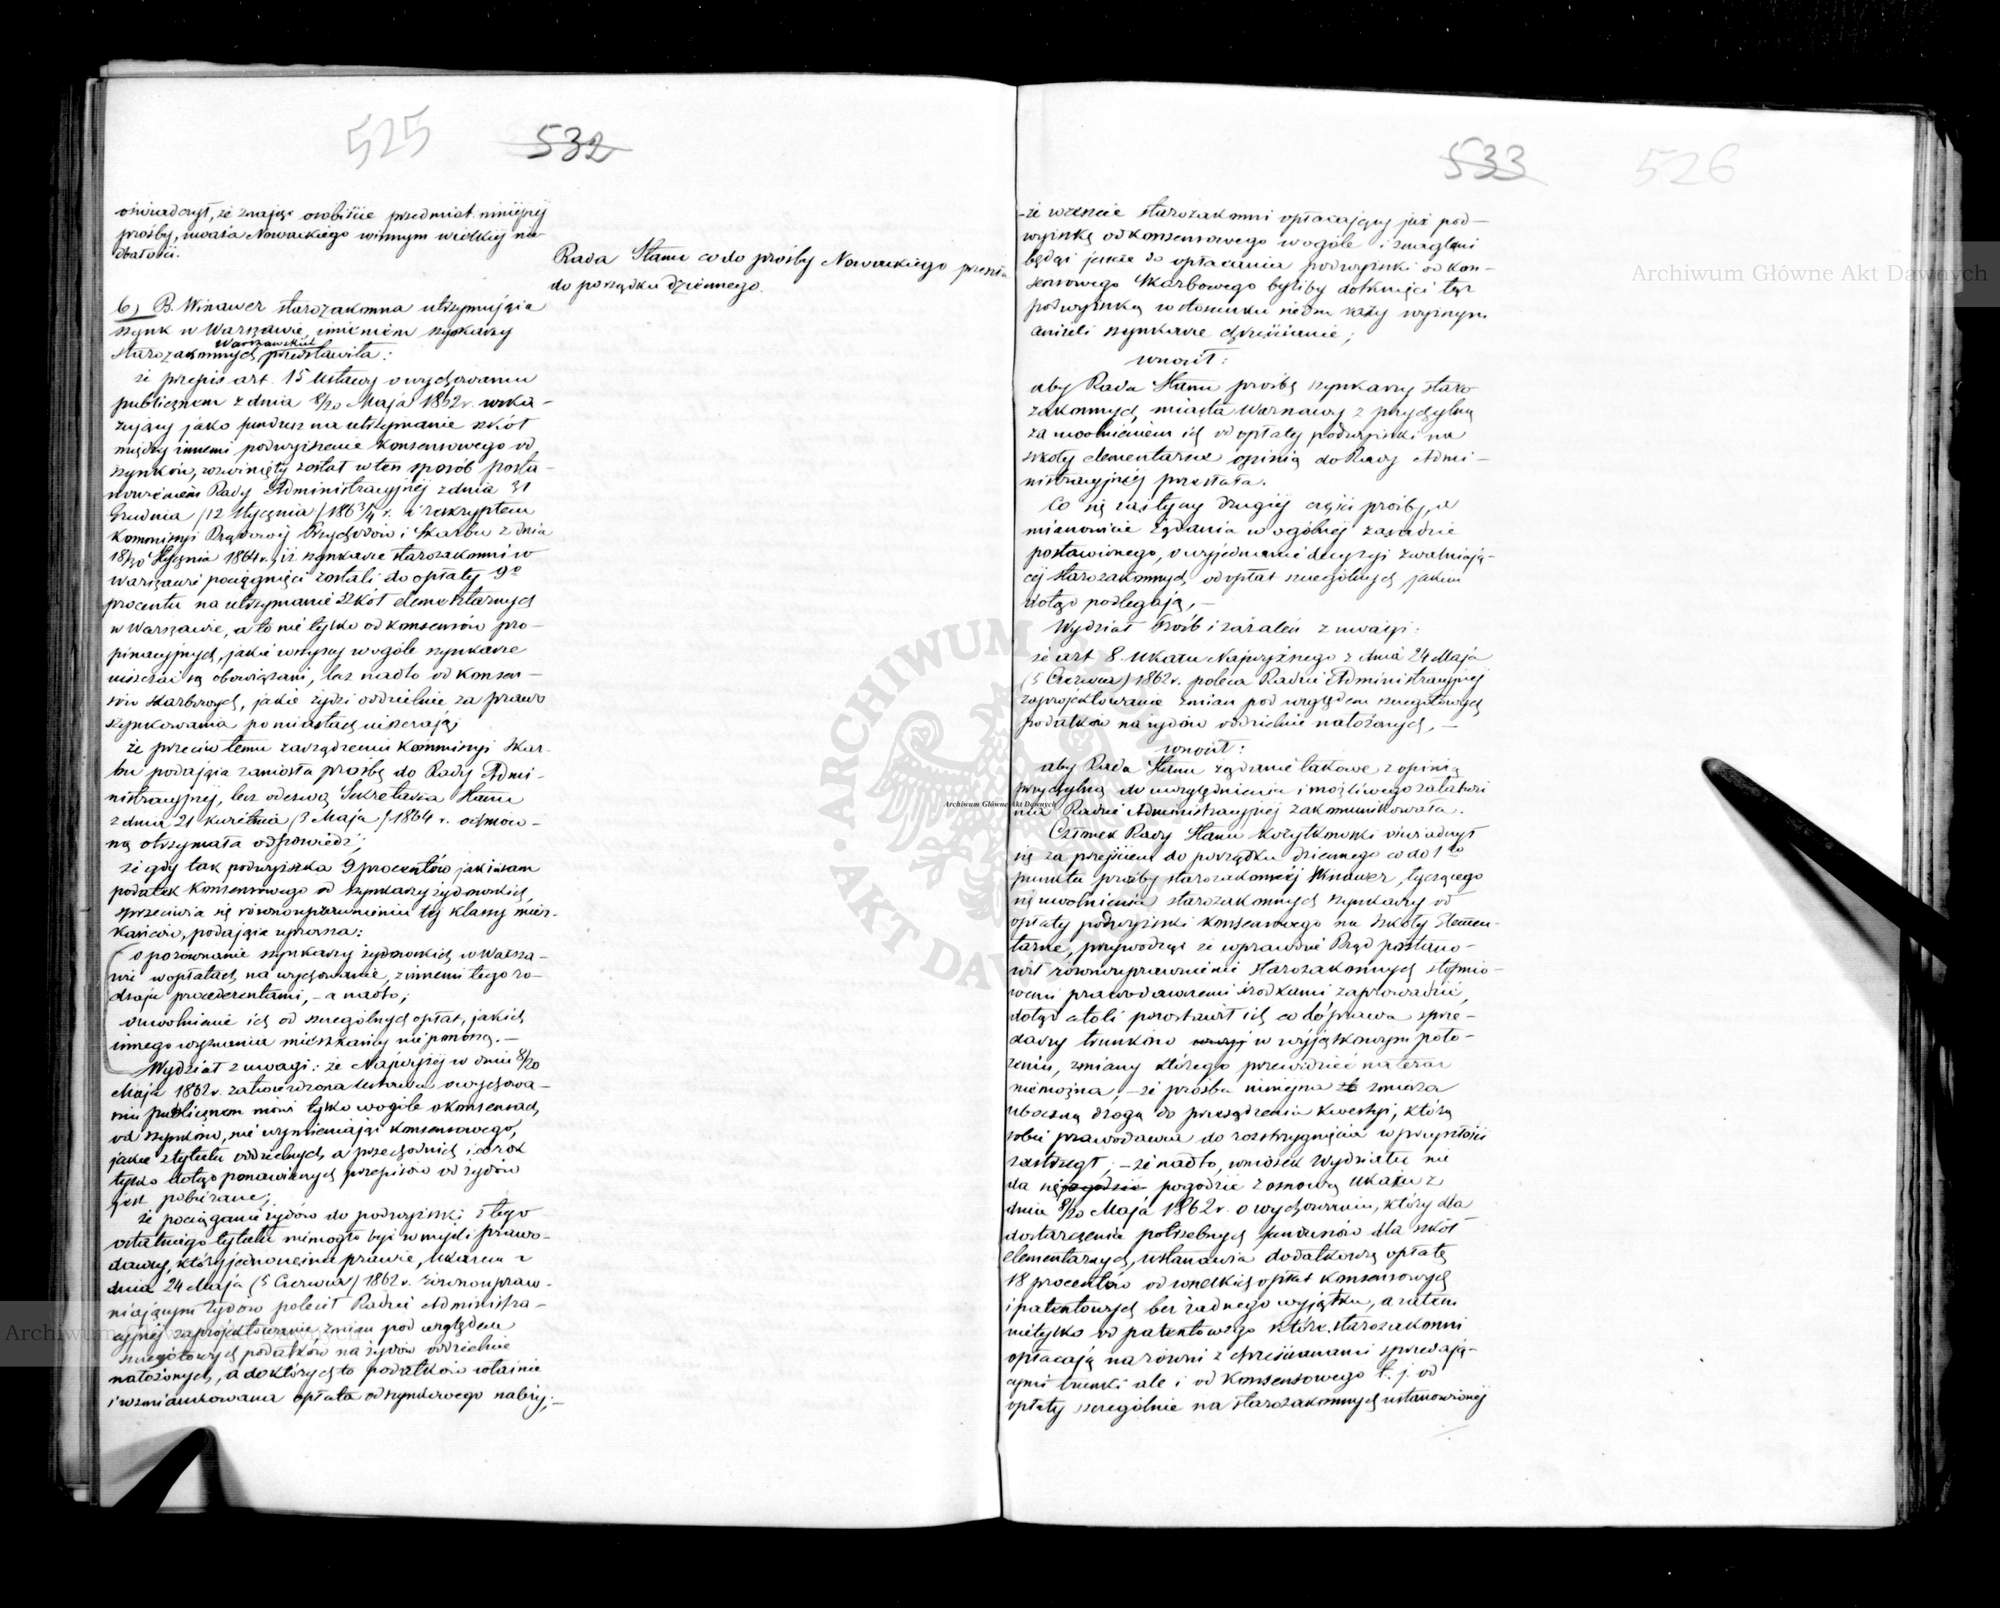 525 532
oświadczył, że znając osobiście przedmiot niniejszej
prośby, uważa Nowackiego winnym wielkiej nie-
dbałości.
Rada Stanu co do prośby Nowackiego
do porządku dziennego.
6) B. Winawer starozakonna utrzymująca
szynk w Warszawie, imieniem szynkarzy
Warszawskich
starozakonnych przedstawiła:
że przepis art. 15 Ustawy o wychowaniu
publicznem z dnia 8/20 Maja 1862 r. wska-
zujący jako fundusz na utrzymanie szkół
między innemi podwyższenie konsensowego od
szynków, rozwinięty został w ten sposób posta-
nowieniem Rady Administracyjnej z dnia 31
Grudnia (12 Stycznia) 1863/4 r. i reskryptem
Kommissyi Rządowej Przychodów i Skarbu z dnia
18/30 Stycznia 1864 r., iż szynkarze starozakonni w
Warszawie pociągnięci zostali do opłaty 9o
procentu na utrzymanie szkół elementarnych
w Warszawie, a to nie tylko od konsensów pro-
pinacyjnych, jakie wszyscy w ogóle szynkarze
uiszczać są obowiązani, lecz nadto od konsen-
sów skarbowych, jakie żydzi oddzielnie za prawo
szynkowania po miastach uiszczają;
że przeciw temu zarządzeniu Kommissyi Skar-
bu podająca zaniosła prośbę do Rady Admi-
nistracyjnej, lecz odezwą Sekretarza Stanu
z dnia 21 Kwietnia (3 Maja) 1864 r. odmow-
ną otrzymała odpowiedź;
że gdy tak podwyżka 9 procentów jak i sam
podatek konsensowego od szynkarzy żydowskich,
sprzeciwia się równouprawnieniu tej klassy miesz-
kańców, podająca uprasza:
o porównanie szynkarzy żydowskich w Warsza-
wie w opłatach na wychowanie, z innemi tego ro-
dzaju procederentami, – a nadto;
o uwolnienie ich od szczególnych opłat, jakich
innego wyznania mieszkańcy nie ponoszą. –
Wydział z uwagi: że Najwyżej w dniu 8/20
Maja 1862 r. zatwierdzona Ustawa o wychowa-
niu publicznem mówi tylko w ogóle o konsensach,
od szynków, nie wymieniając konsensowego,
jakie z tytułu oddzielnych a przechodnich i co rok
tylko dotąd ponawianych przepisów od żydów
jest pobierane;
że pociąganie żydów do podwyżki z tego
ostatniego tytułu nie mogło być w myśli prawo-
dawcy, który jednocześnie prawie, Ukazem z
dnia 24 Maja (5 Czerwca) 1862 r. równoupraw-
niającym żydów polecił Radzie Administra-
cyjnej zaprojektowanie zmian pod względem
szczegółowych podatków na żydów oddzielnie
nałożonych, a do których to podatków właśnie
i wzmiankowana opłata od szynkowego należy; –
533 526
– że wreszcie starozakonni opłacający już pod-
wyżkę od konsensowego w ogóle i zmagleni
będąc jeszcze do opłacania podwyżki od kon-
sensowego Skarbowego byliby dotknięci tąż
podwyżką w stosunku nierównie wyższym
aniżeli szynkarze chrześcianie;
wnosił:
aby Rada Stanu prośbę szynkarzy staro-
zakonnych miasta Warszawy z przychylną
za uwolnieniem ich od opłaty podwyżki na
szkoły elementarne opinią do Rady Admi-
nistracyjnej przesłała.
Co się zaś tyczy drugiej części prośby, a
mianowicie żądania w ogólnej zasadzie
postawionego, o wyjednanie decyzyi zwalniają-
cej starozakonnych od opłat szczególnych jakim
dotąd podlegają, –
Wydział Próśb i zażaleń z uwagi:
że art 8. Ukazu Najwyższego z dnia 24 Maja
(5 Czerwca) 1862 r. poleca Radzie Administracyjnej
zaprojektowanie zmian pod względem szczegółowych
podatków na żydów oddzielnie nałożonych, –
wnosił:
aby Rada Stanu żądanie takowe z opinią
przychylną do uwzględnienia i możliwego załatwie-
nia Radzie Administracyjnej zakomunikowała.
Członek Rady Stanu oświadczył
się za przejściem do porządku dziennego co do 1go
punktu prośby starozakonnej Winawer, tyczącego
się uwolnienia starozakonnych szynkarzy od
opłaty podwyżki konsensowego na Szkoły Elemen-
tarne, przywodząc że wprawdzie Rząd postano-
wił równouprawnienie starozakonnych stopnio-
wemi prawodawczemi środkami zaprowadzić,
dotąd atoli pozostawił ich co do prawa sprze-
daży trunków w wyjątkowym poło-
żeniu, zmiany którego przewidzieć na teraz
nie można; – że prośba niniejsza zmierza
uboczną drogą do przesądzenia kwestyi, którą
sobie prawodawca do rozstrzygnięcia w przyszłości
zastrzegł; – że nadto, wniosek Wydziału nie
da się pogodzić z osnową Ukazu z
dnia 8/20 Maja 1862 r. o wychowaniu, który dla
dostarczenia potrzebnych funduszów dla szkół
elementarnych, ustanawia dodatkową opłatę
18 procentów od wszelkich opłat konsensowych
i patentowych bez żadnego wyjątku, a zatem
nietylko od patentowego które starozakonni
opłacają na równi z chrześcianami sprzedają-
cymi trunki ale i od konsensowego t. j. od
opłaty szczególnie na starozakonnych ustanowionej
Archiwum Główne Akt Dawnych
Archiwum Główne Akt Dawnych
Archiwum Główne Akt Dawnych
ARCHIWUM GŁÓWNE AKT DAWNYCH